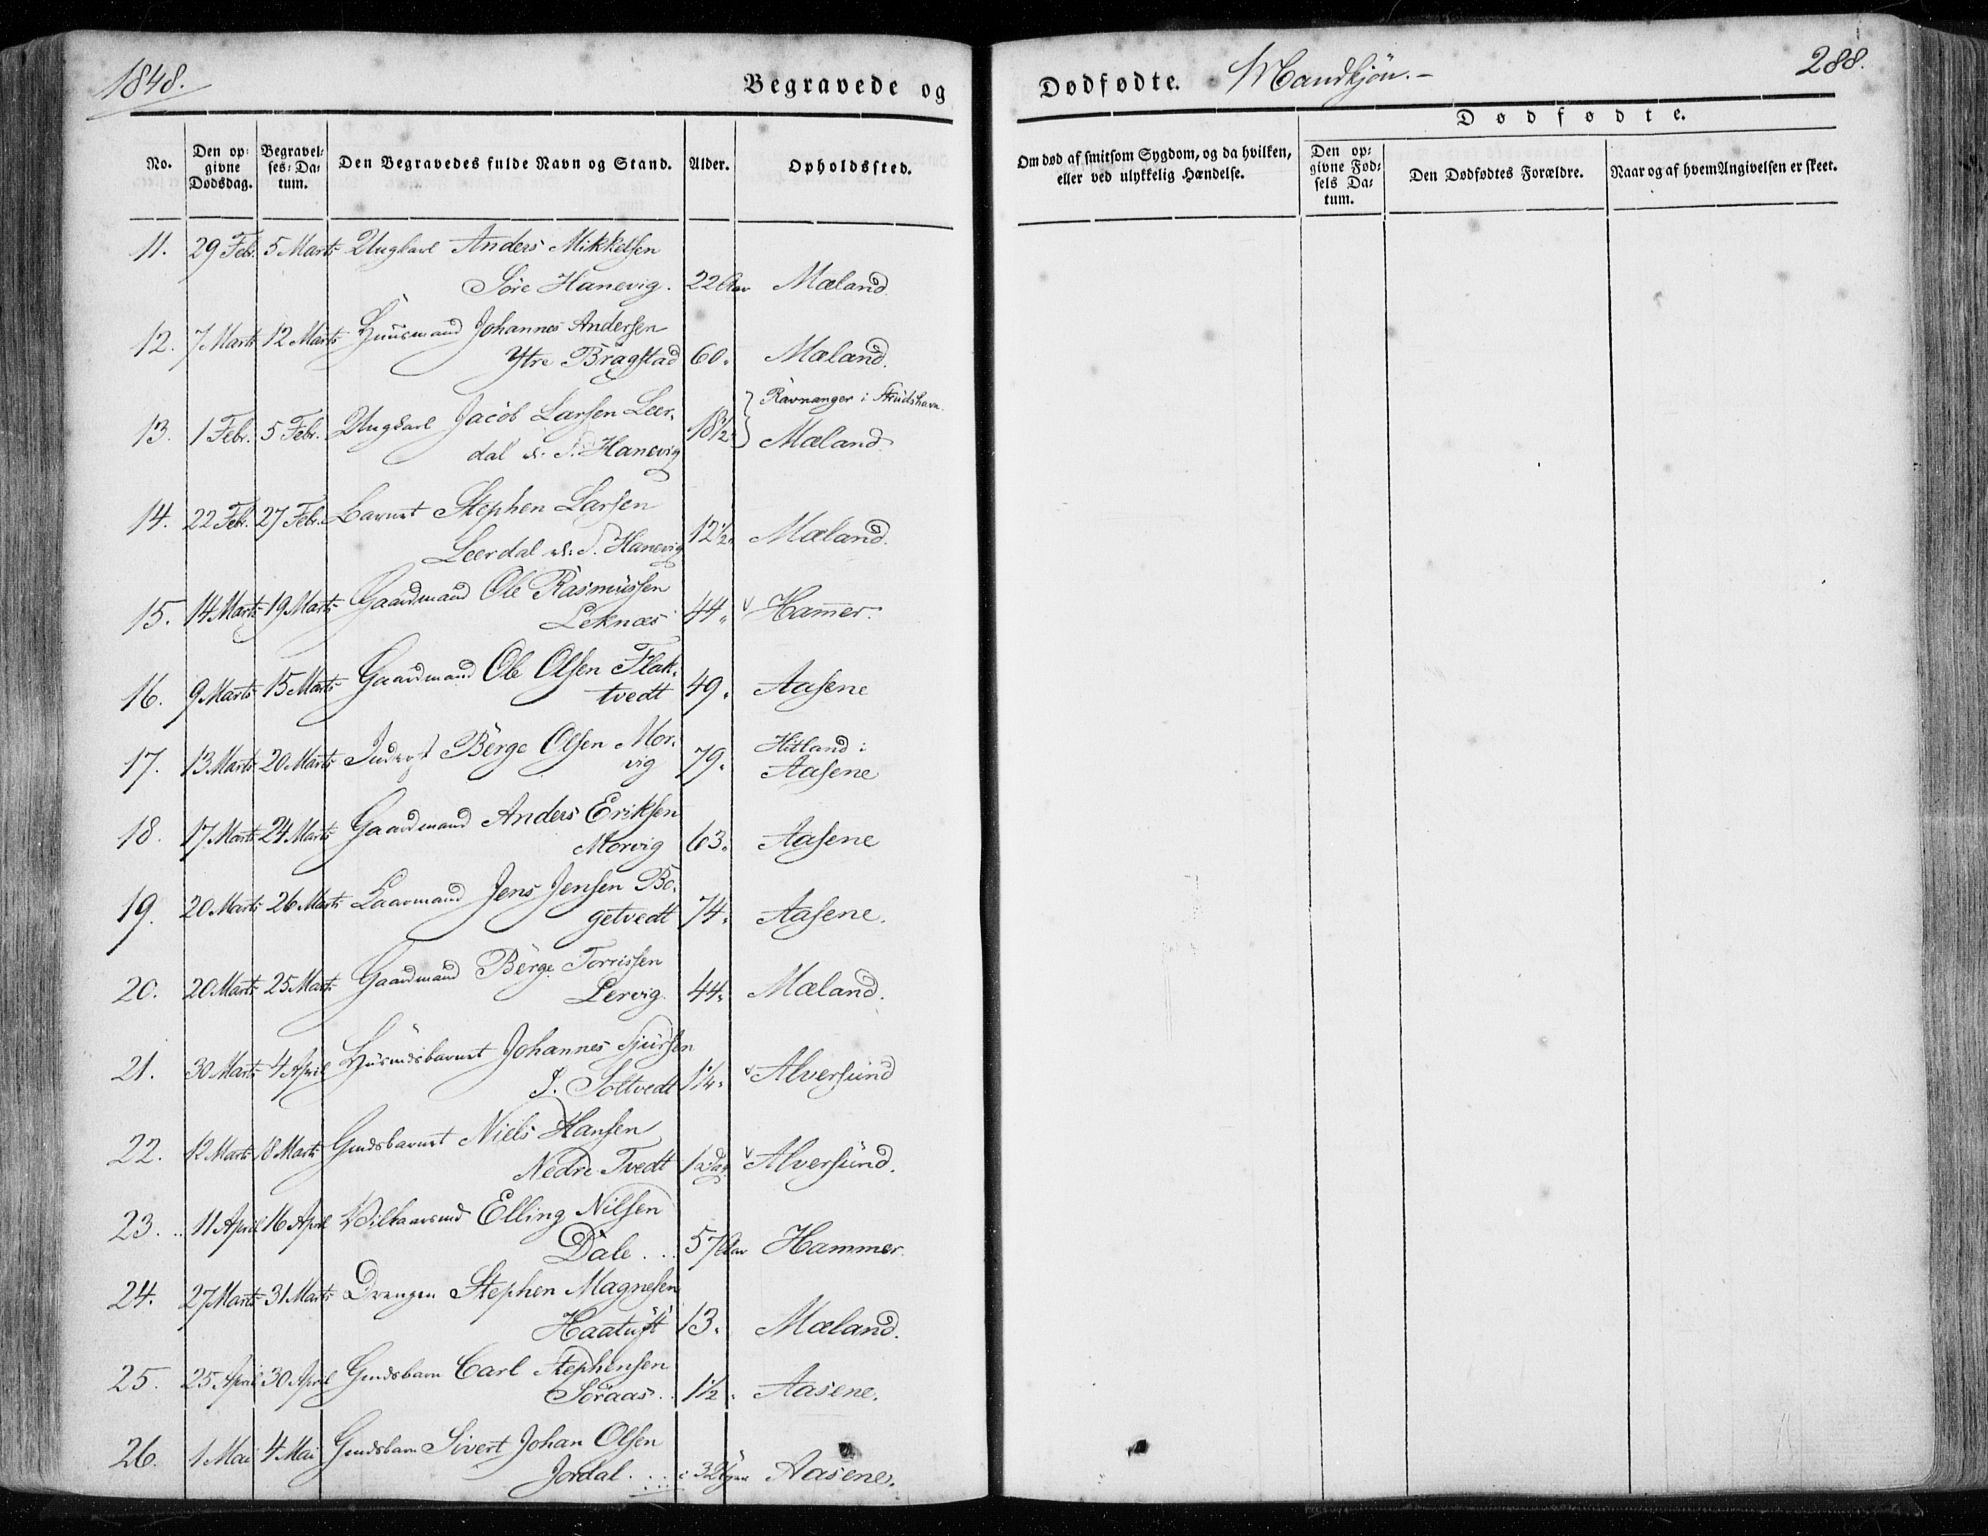 1848.
Begravede og
Dødfødte. Mandkjøn.-
288.
No.
Den opgivne Dødsdag.
Begravelses-Datum.
Den Begravedes fulde Navn og Stand.
Alder.
Opholdssted.
Om død af smitsom Sygdom, og da hvilken, eller ved ulykkelig Hændelse.
Dødfødte.
Den opgivne Fødsels Datum.
Den Dødfødtes Forældre.
Naar og af hvem Angivelsen er skeet.
11. 29 Febr. 5 Marts Ungkarl Anders Mikkelsen
Söre Hanevig. 22 Aar Mæland
12. 7 Marts 12 Marts Huusmand Johannes Andersen
Ytre Bragstad 60 " Mæland.
13. 1 Febr. 5 Febr. Ungkarl Jacob Larsen Leer-
dal d: I. Hanevig 18½ " Ravnanger i Strudshavn.
Mæland
14. 22 Febr. 27 Febr. Barnet Stephen Larsen
Leerdal d: I. Hanevig 12½ " Mæland.
15. 14 Marts 19 Marts Gaardmand Ole Rasmussen
Leknæs 44 " v Hammer.
16. 9 Marts 15 Marts Gaardmand Ole Olsen Flak-
tvedt 49 " Aasene
17. 13 Marts 20 Marts Børge Olsen Mor-
vig 79 " Hitland i
Aasene
18. 17 Marts 24 Marts Gaardmand Anders Eriksen
Morvig 63 " Aasene
19. 20 Marts 26 Marts Kaarmand Jens Jensen Bö-
getvedt 74 " Aasene.
20. 20 Marts 25 Marts Gaardmand Børge Torrissen
Lervig. 44 " Mæland.
21. 30 Marts 4 April Huusmdsbarnet Johannes Sjursen
I. Soltvedt 1¼ " v Alversund
22. 12 Marts 18 Marts Gmdsbarnet Niels Hansen
Nedre Tvedt 1 Dag v Alversund.
23. 11 April 16 April Vilkaarsmd Elling Nilsen
Dale . . 57 Aar Hammer.
24. 27 Marts 31 Marts Drengen Stephen Magnesen
Haatuft 13 " Mæland.
25. 25 April 30 April Gmdsbarn Carl Stephensen
Söraas . . 1½ " Aasene.
26. 1 Mai 4 Mai Gmdsbarn Sivert Johan Olsen
Jordal . . . . 3 Uger Aasene.